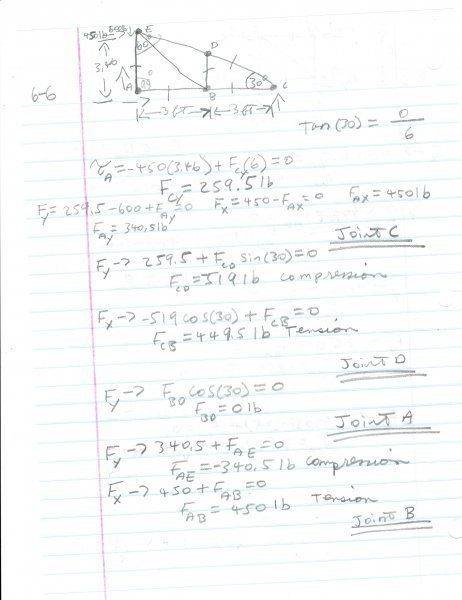 450lb E
60°
3,46
D
6-6
A
B
30° C
3FT 3FT
tan(30) = 0/6
τ_A = -450(3.46) + F_Cy(6) = 0
F_Cy = 259.5 lb
F_y = 259.5 - 600 + F_Ay = 0 F_x = 450 - F_AX = 0 F_AX = 450 lb
F_Ay = 340.5 lb
Joint C
F_y → 259.5 + F_CD sin(30) = 0
F_CD = -519 lb compression
F_x → -519 cos(30) + F_CB = 0
F_CB = 449.5 lb Tension
Joint D
F_y → F_BD cos(30) = 0
F_BD = 0 lb
Joint A
F_y → 340.5 + F_AE = 0
F_AE = -340.5 lb compression
F_x → 450 + F_AB = 0
F_AB = 450 lb Tension
Joint B